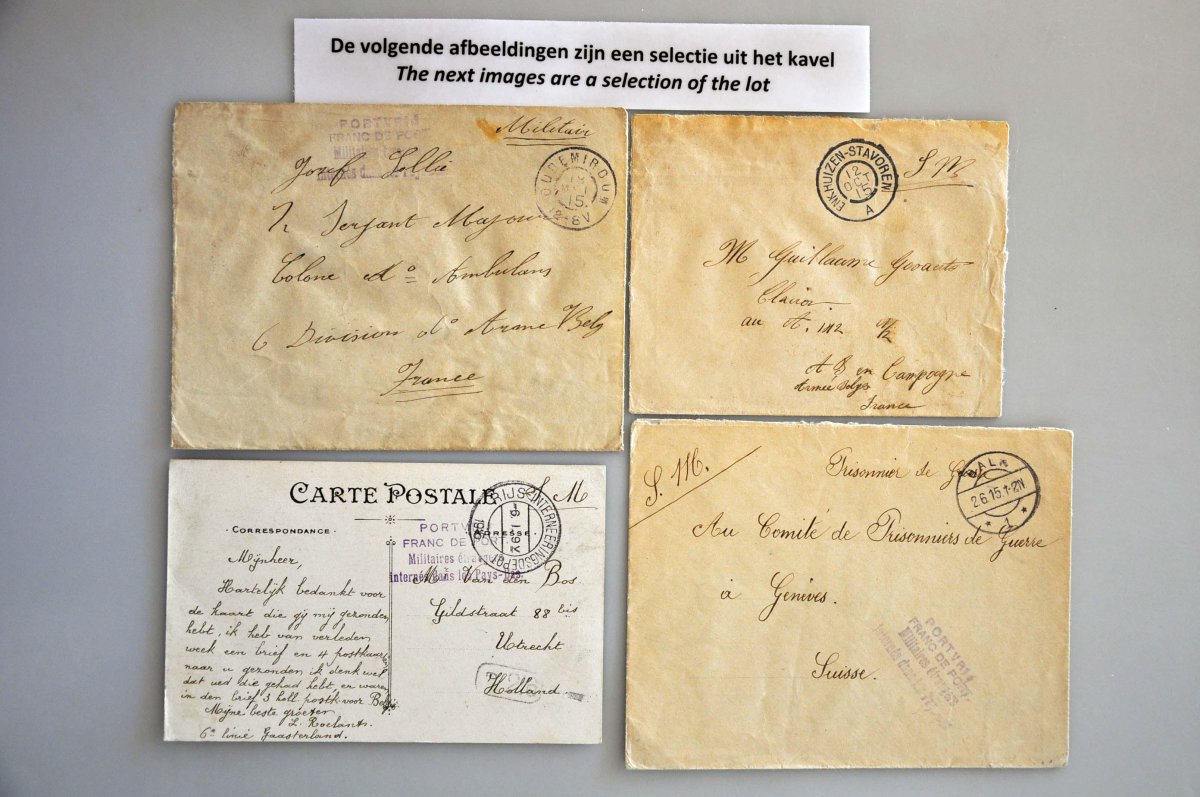 De volgende afbeeldingen zijn een selectie uit het kavel
The next images are a selection of the lot
PORTVRIJ
FRANC DE PORT
Militaires
Internés dans
Militair
OUDEMIRDUM
15
Josef Lollie
Serjant Majour
Colone do Ambulans
6 Division do Arane Belg
France
ENKHUIZEN-STAVOREN
12 OCT 15
A
S M
M Guillaume Govaerts
Clairon
au A. 112
A B en Campagne
Armée Belge
France
CARTE POSTALE
S M
RIJS-INTERNEERINGSDEPOT
CORRESPONDANCE
ADRESSE
PORTVRIJ
FRANC DE PORT
Militaires étrangers
Internés dans les Pays-Bas.
Mijnheer,
Hartelijk bedankt voor
de kaart die gij mij gezonden
hebt, ik heb van verleden
week een brief en 4 postkaarten
naar u gezonden ik denk wel
dat ued die gehad hebt, er waren
in den brief 3 holl. postk. voor België
Mijne beste groeten
L. Roelants.
6e linie Gaasterland.
Mr Van den Bos.
Gildstraat 88 bis
Utrecht
Holland
S. M.
Prisonnier de Guerre
BALK
2.6.15.1-2N
1
Au Comité de Prisonniers de Guerre
à Genèves.
Suisse.
PORTVRIJ
FRANC DE PORT.
Militaires étrangers
Internés dans les Pays-Bas